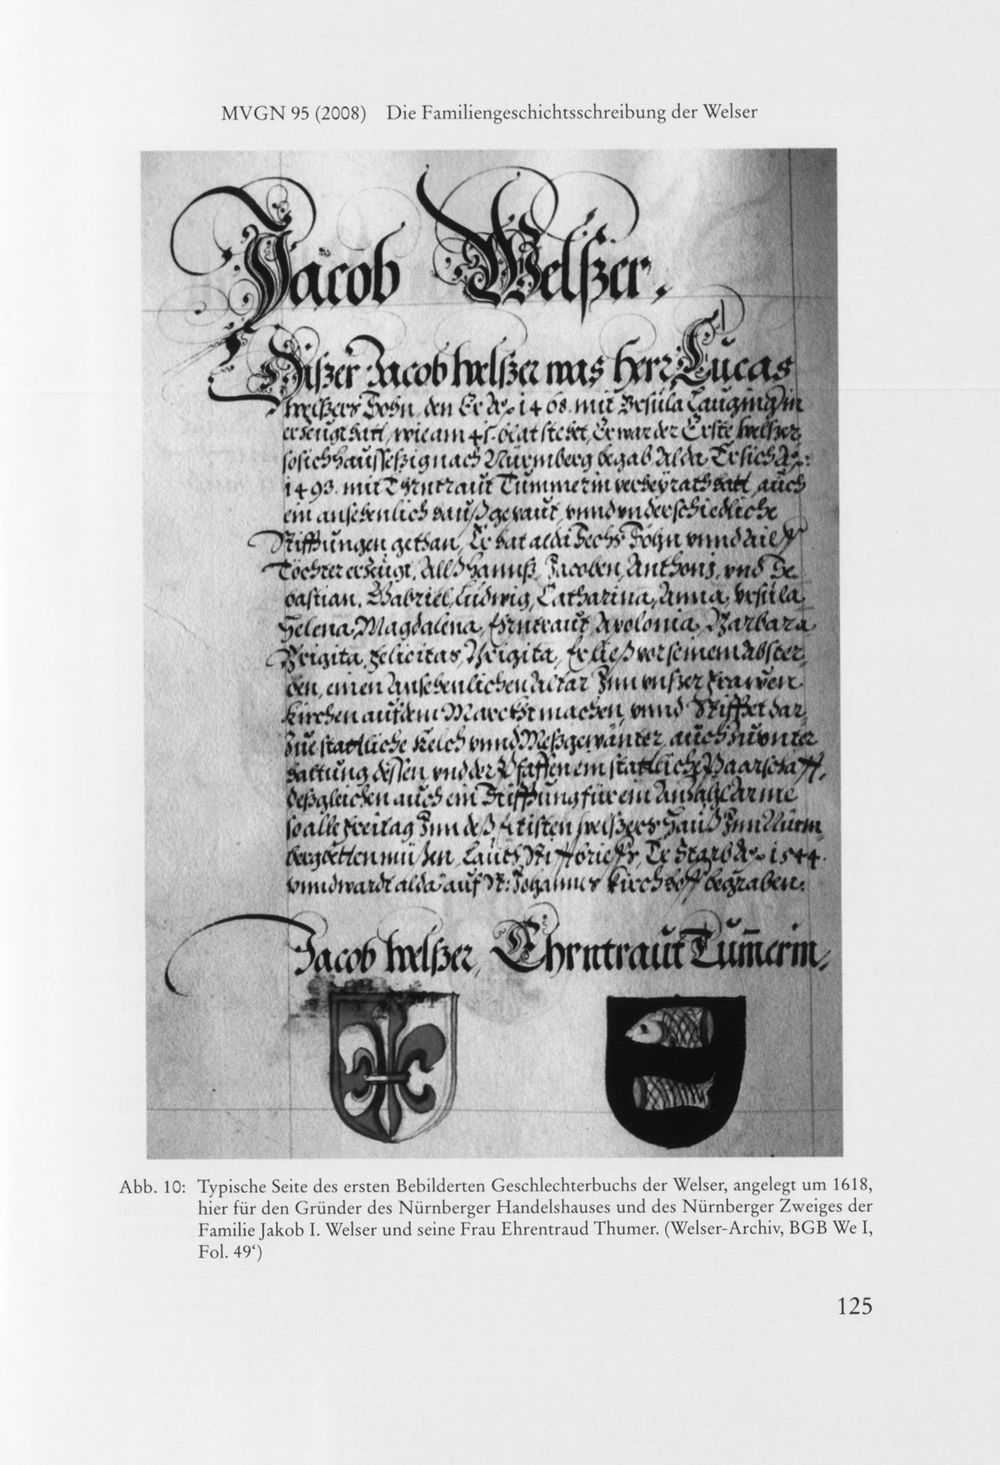 MVGN 95 (2008) Die Familiengeschichtsschreibung der Welser
Jacob Welßer.
Dißer Jacob Welßer was herr Lucas
Welßers Sohn, den Er Aº 1468. mit Vrsula Laugingin
erzeugt hatt, wie am 45. blat stehet, Er war der Erste Welßer
so sich haussessig nach Nürmberg begab, Alda Er sich Aº:
1493. mit Ehrntraut Tummerin verheyrath hatt, auch
ein ansehenlich hauß gebaut, vnnd vnderschiedliche
Stifftungen gethan, Er hat alda Sechs Söhn vnnd
Töchter erzeugt, Alß Hannß, Jacoben, Anthonj, vnd Se
bastian, Gabriel, Ludwig, Catharina, Anna, Vrsula,
Helena, Magdalena, Ehrntraut, Apolonia, Barbara
Brigita, Felicitas, Brigita, Er ließ vor seinem Abster
ben, einen Ansehenlichen Altar Inn vnßer Frawen
Kirchen auf dem Marckt machen, vnnd Stifftet dar
zue stattliche Kelch vnnd Meßgewänter, auch zu vnter
haltung dessen, vnd der Pfaffen ein stattliche Paarschafft,
deßgleichen auch ein Stifftung für ein Anzahl Arme
so alle Freitag Inn deß Welßers Hauß Inn Nürm
berg betlen müßen, Lauth Stifftbrieffs, Er Starb Aº 1544.
vnnd wardt alda auf St: Johannes Kirchhoff begraben.
Jacob Welßer, Ehrntraut Tum̄erin,
Abb. 10: Typische Seite des ersten Bebilderten Geschlechterbuchs der Welser, angelegt um 1618,
hier für den Gründer des Nürnberger Handelshauses und des Nürnberger Zweiges der
Familie Jakob I. Welser und seine Frau Ehrentraud Thumer. (Welser-Archiv, BGB We I,
Fol. 49‘)
125